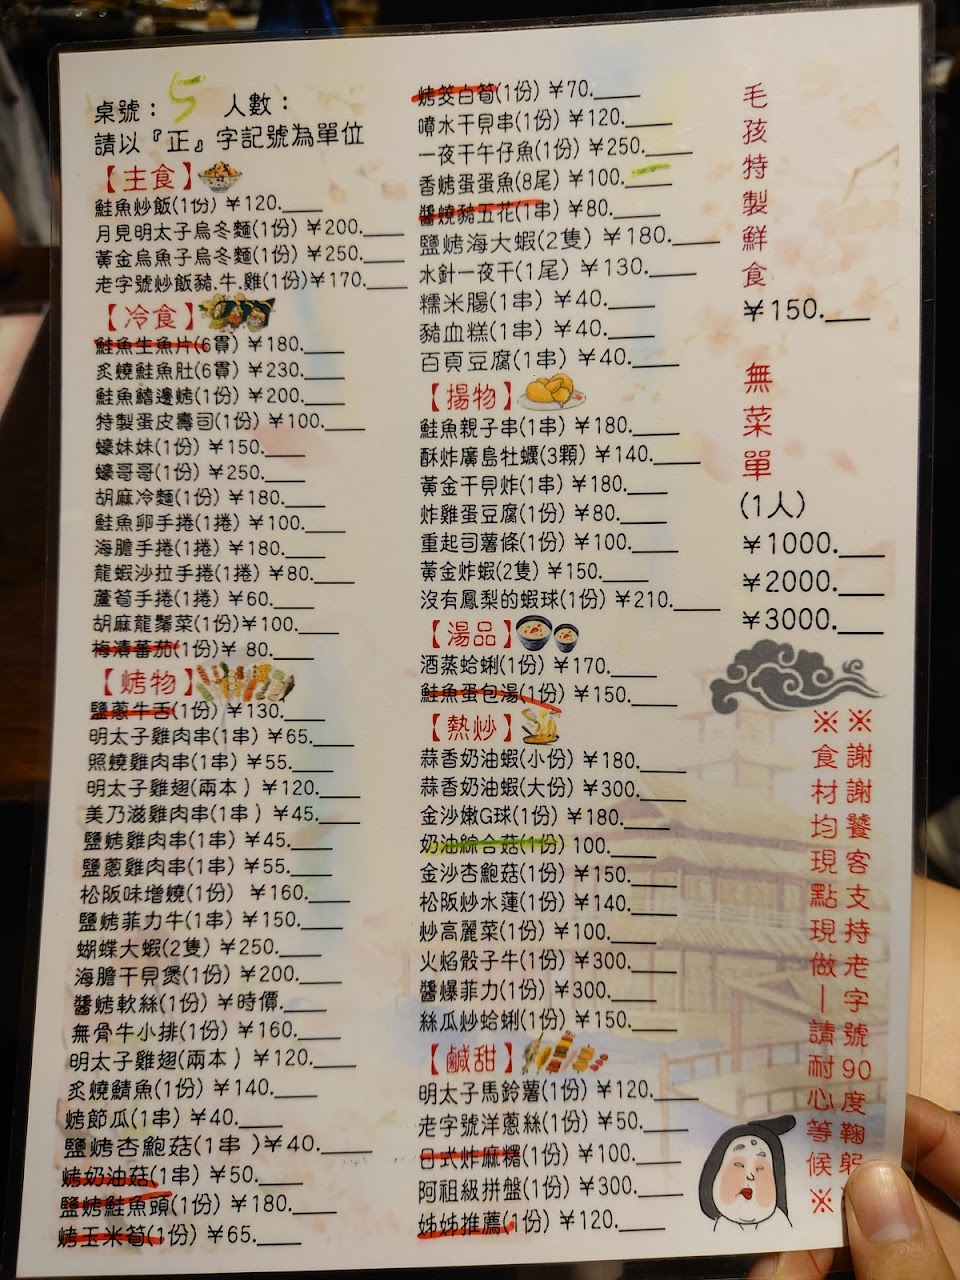 桌號： 5 人數：
請以『正』字記號為單位
【主食】
鮭魚炒飯(1份) ￥120.____
月見明太子烏冬麵(1份) ￥200.____
黃金烏魚子烏冬麵(1份) ￥250.____
老字號炒飯豬.牛.雞(1份)￥170.____
【冷食】
鮭魚生魚片(6貫) ￥180.____
炙燒鮭魚肚(6貫) ￥230.____
鮭魚鰭邊烤(1份) ￥200.____
特製蛋皮壽司(1份) ￥100.____
蠔妹妹(1份) ￥150.____
蠔哥哥(1份) ￥250.____
胡麻冷麵(1份) ￥180.____
鮭魚卵手捲(1捲) ￥100.____
海膽手捲(1捲) ￥180.____
龍蝦沙拉手捲(1捲) ￥80.____
蘆筍手捲(1捲) ￥60.____
胡麻龍鬚菜(1份)￥100.____
梅漬蕃茄(1份)￥ 80.____
【烤物】
鹽蔥牛舌(1份) ￥130.____
明太子雞肉串(1串) ￥65.____
照燒雞肉串(1串) ￥55.____
明太子雞翅(兩本 ) ￥120.____
美乃滋雞肉串(1串 ) ￥45.____
鹽烤雞肉串(1串) ￥45.____
鹽蔥雞肉串(1串) ￥55.____
松阪味增燒(1份) ￥160.____
鹽烤菲力牛(1串) ￥150.____
蝴蝶大蝦(2隻) ￥250.____
海膽干貝煲(1份) ￥200.____
醬烤軟絲(1份) ￥時價.____
無骨牛小排(1份) ￥160.____
明太子雞翅(兩本 ) ￥120.____
炙燒鯖魚(1份) ￥140.____
烤節瓜(1串) ￥40.____
鹽烤杏鮑菇(1串 )￥40.____
烤奶油菇(1串) ￥50.____
鹽烤鮭魚頭(1份) ￥180.____
烤玉米筍(1份) ￥65.____
烤筊白筍(1份) ￥70.____
噴水干貝串(1份) ￥120.____
一夜干午仔魚(1份) ￥250.____
香烤蛋蛋魚(8尾) ￥100.____
醬燒豬五花(1串) ￥80.____
鹽烤海大蝦(2隻) ￥180.____
水針一夜干(1尾) ￥130.____
糯米腸(1串) ￥40.____
豬血糕(1串) ￥40.____
百頁豆腐(1串) ￥40.____
【揚物】
鮭魚親子串(1串) ￥180.____
酥炸廣島牡蠣(3顆) ￥140.____
黃金干貝炸(1串) ￥180.____
炸雞蛋豆腐(1份) ￥80.____
重起司薯條(1份) ￥100.____
黃金炸蝦(2隻) ￥150.____
沒有鳳梨的蝦球(1份) ￥210.____
【湯品】
酒蒸蛤蜊(1份) ￥170.____
鮭魚蛋包湯(1份) ￥150.____
【熱炒】
蒜香奶油蝦(小份) ￥180.____
蒜香奶油蝦(大份) ￥300.____
金沙嫩G球(1份) ￥180.____
奶油綜合菇(1份) 100.____
金沙杏鮑菇(1份) ￥150.____
松阪炒水蓮(1份) ￥140.____
炒高麗菜(1份) ￥100.____
火焰骰子牛(1份) ￥300.____
醬爆菲力(1份) ￥300.____
絲瓜炒蛤蜊(1份) ￥150.____
【鹹甜】
明太子馬鈴薯(1份) ￥120.____
老字號洋蔥絲(1份) ￥50.____
日式炸麻糬(1份) ￥100.____
阿祖級拼盤(1份) ￥300.____
姊姊推薦(1份) ￥120.____
毛孩特製鮮食
￥150.____
無菜單
(1人)
￥1000.____
￥2000.____
￥3000.____
※謝謝饕客支持老字號90度鞠躬
※食材均現點現做—請耐心等候※